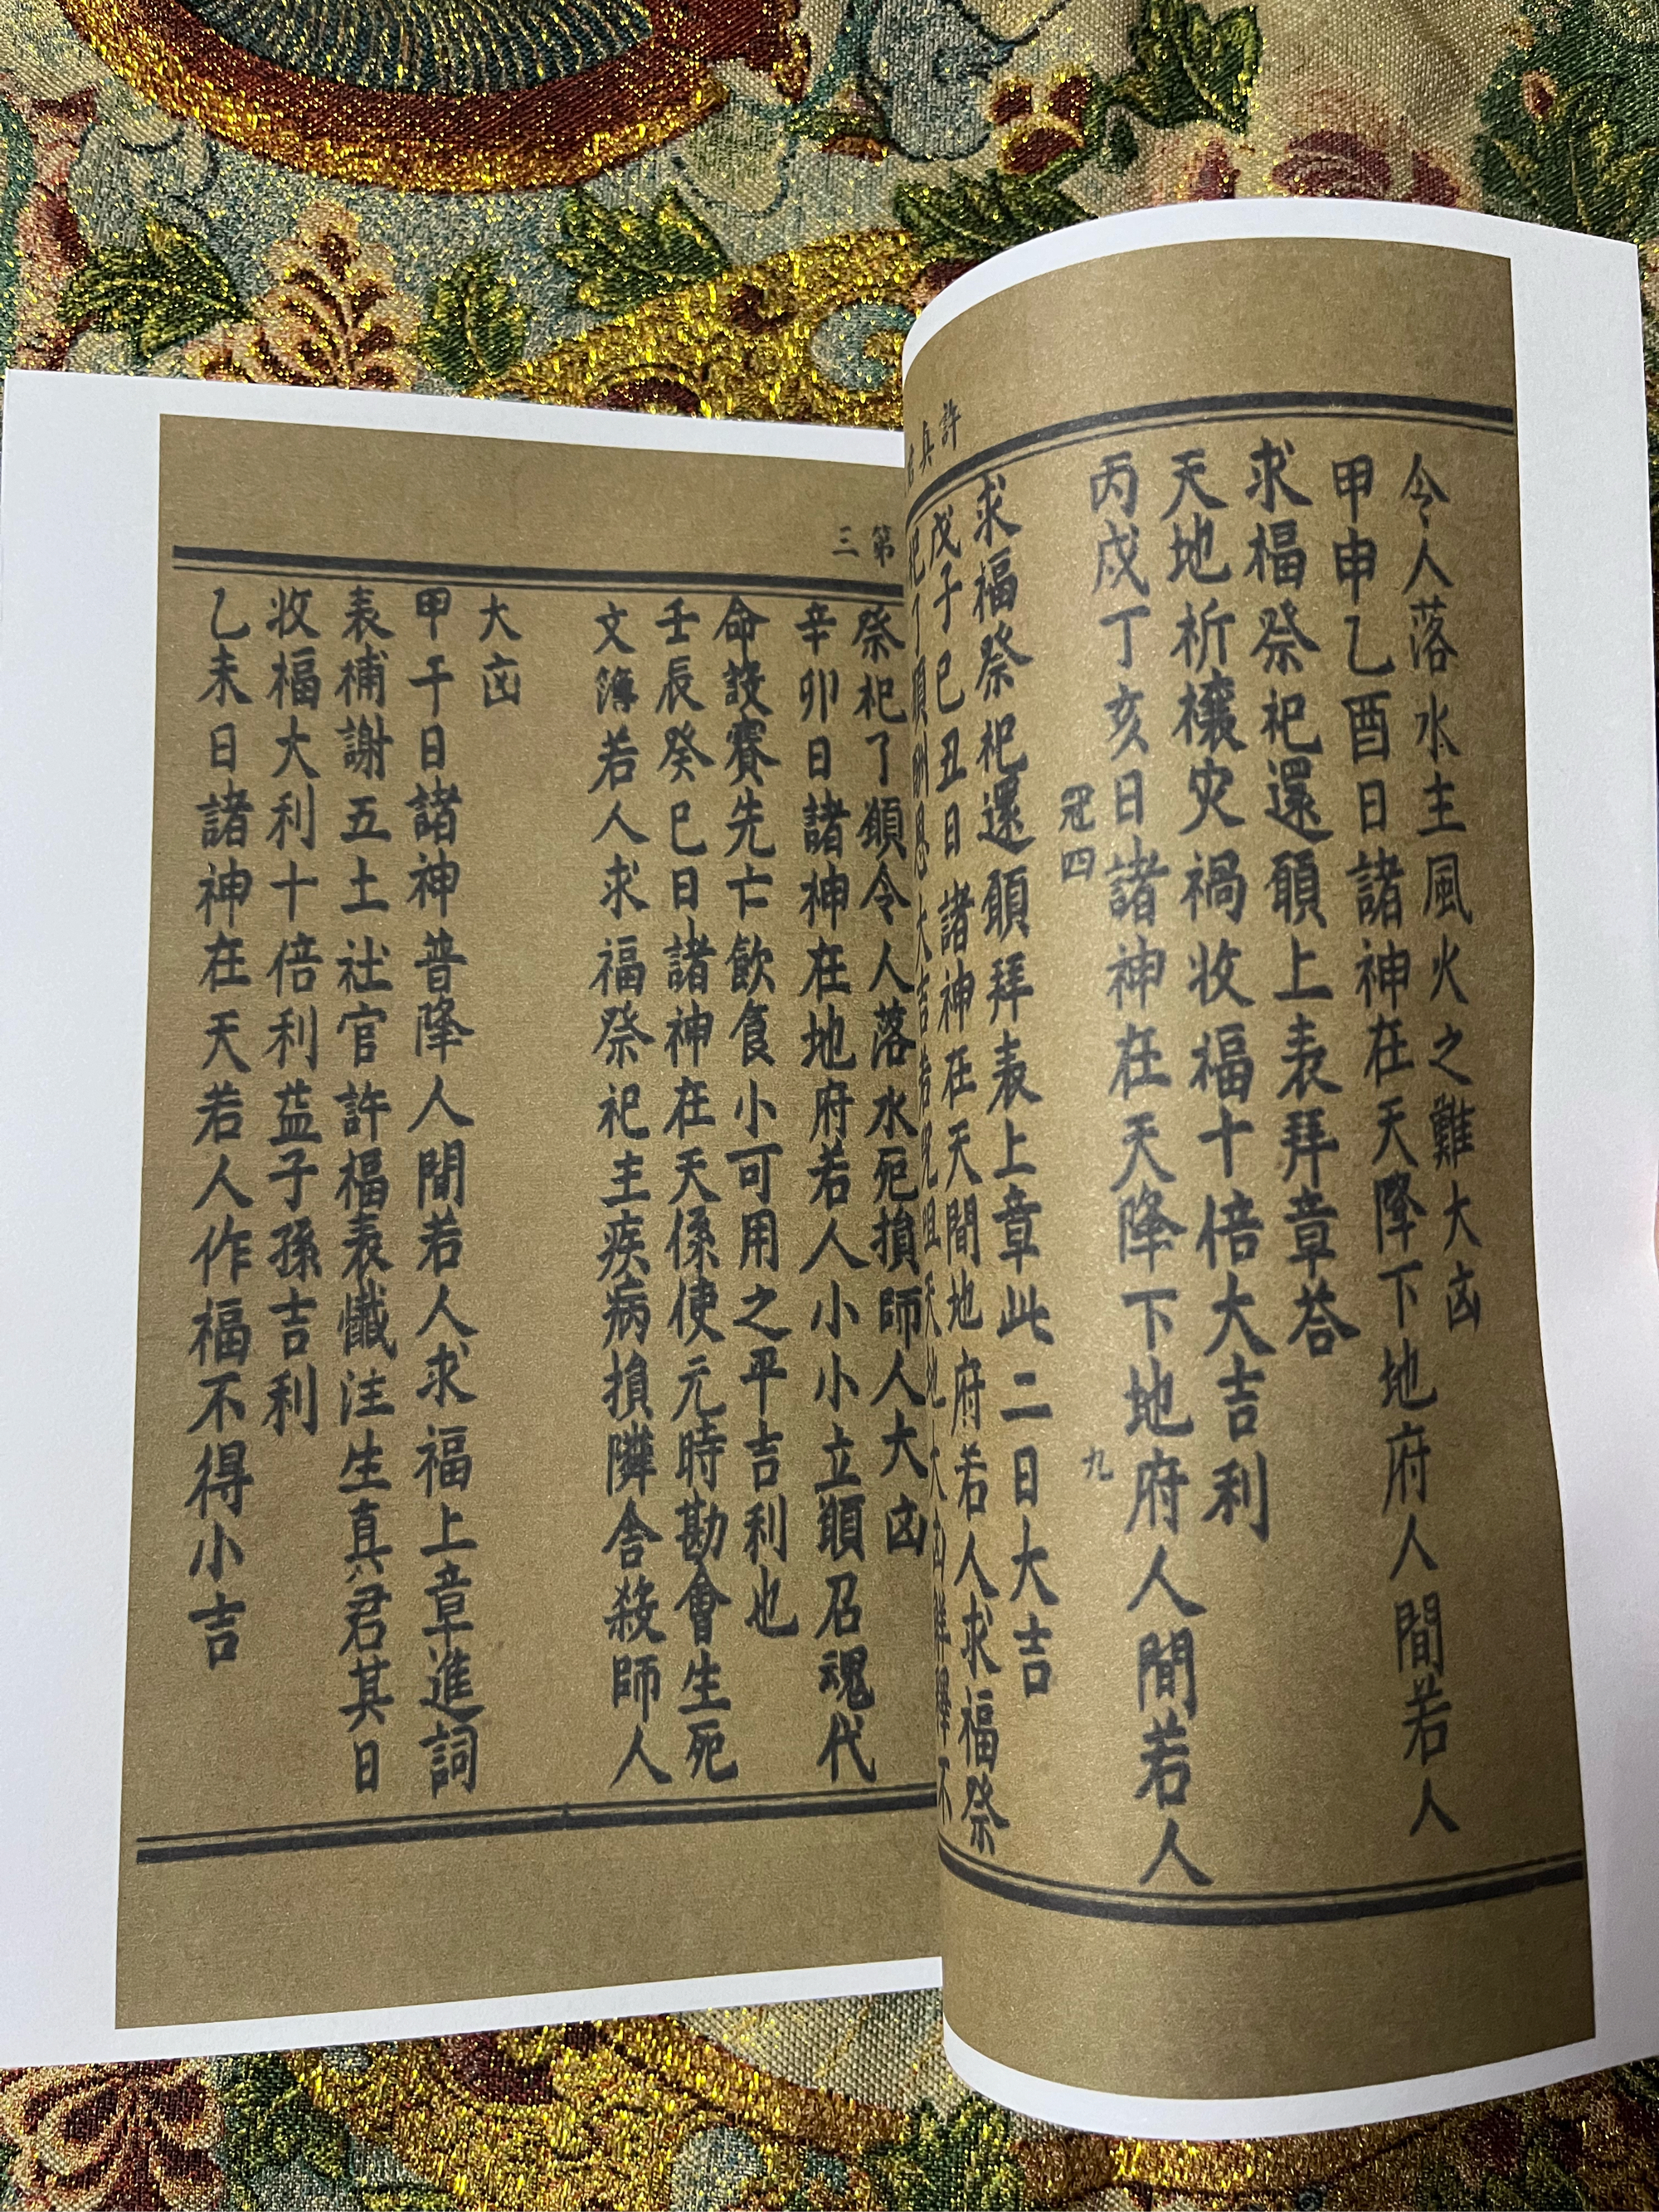 令人落水主風火之難大凶
甲申乙酉日諸神在天降下地府人間若人
求福祭祀還願上表拜章荅
天地祈禳灾禍收福十倍大吉利
丙戌丁亥日諸神在天降下地府人間若人
冠四
九
求福祭祀還願拜表上章此二日大吉
戊子己丑日諸神在天間地府若人求福祭
許真
第三
祭祀了願令人落水死損師人大凶
辛卯日諸神在地府若人小小立願召魂代
命設賽先亡飲食小可用之平吉利也
壬辰癸巳日諸神在天係使元時勘會生死
文簿若人求福祭祀主疾病損隣舍殺師人
大凶
甲午日諸神普降人間若人求福上章進詞
表補謝五土社官許福表懺注生真君其日
收福大利十倍利益子孫吉利
乙未日諸神在天若人作福不得小吉